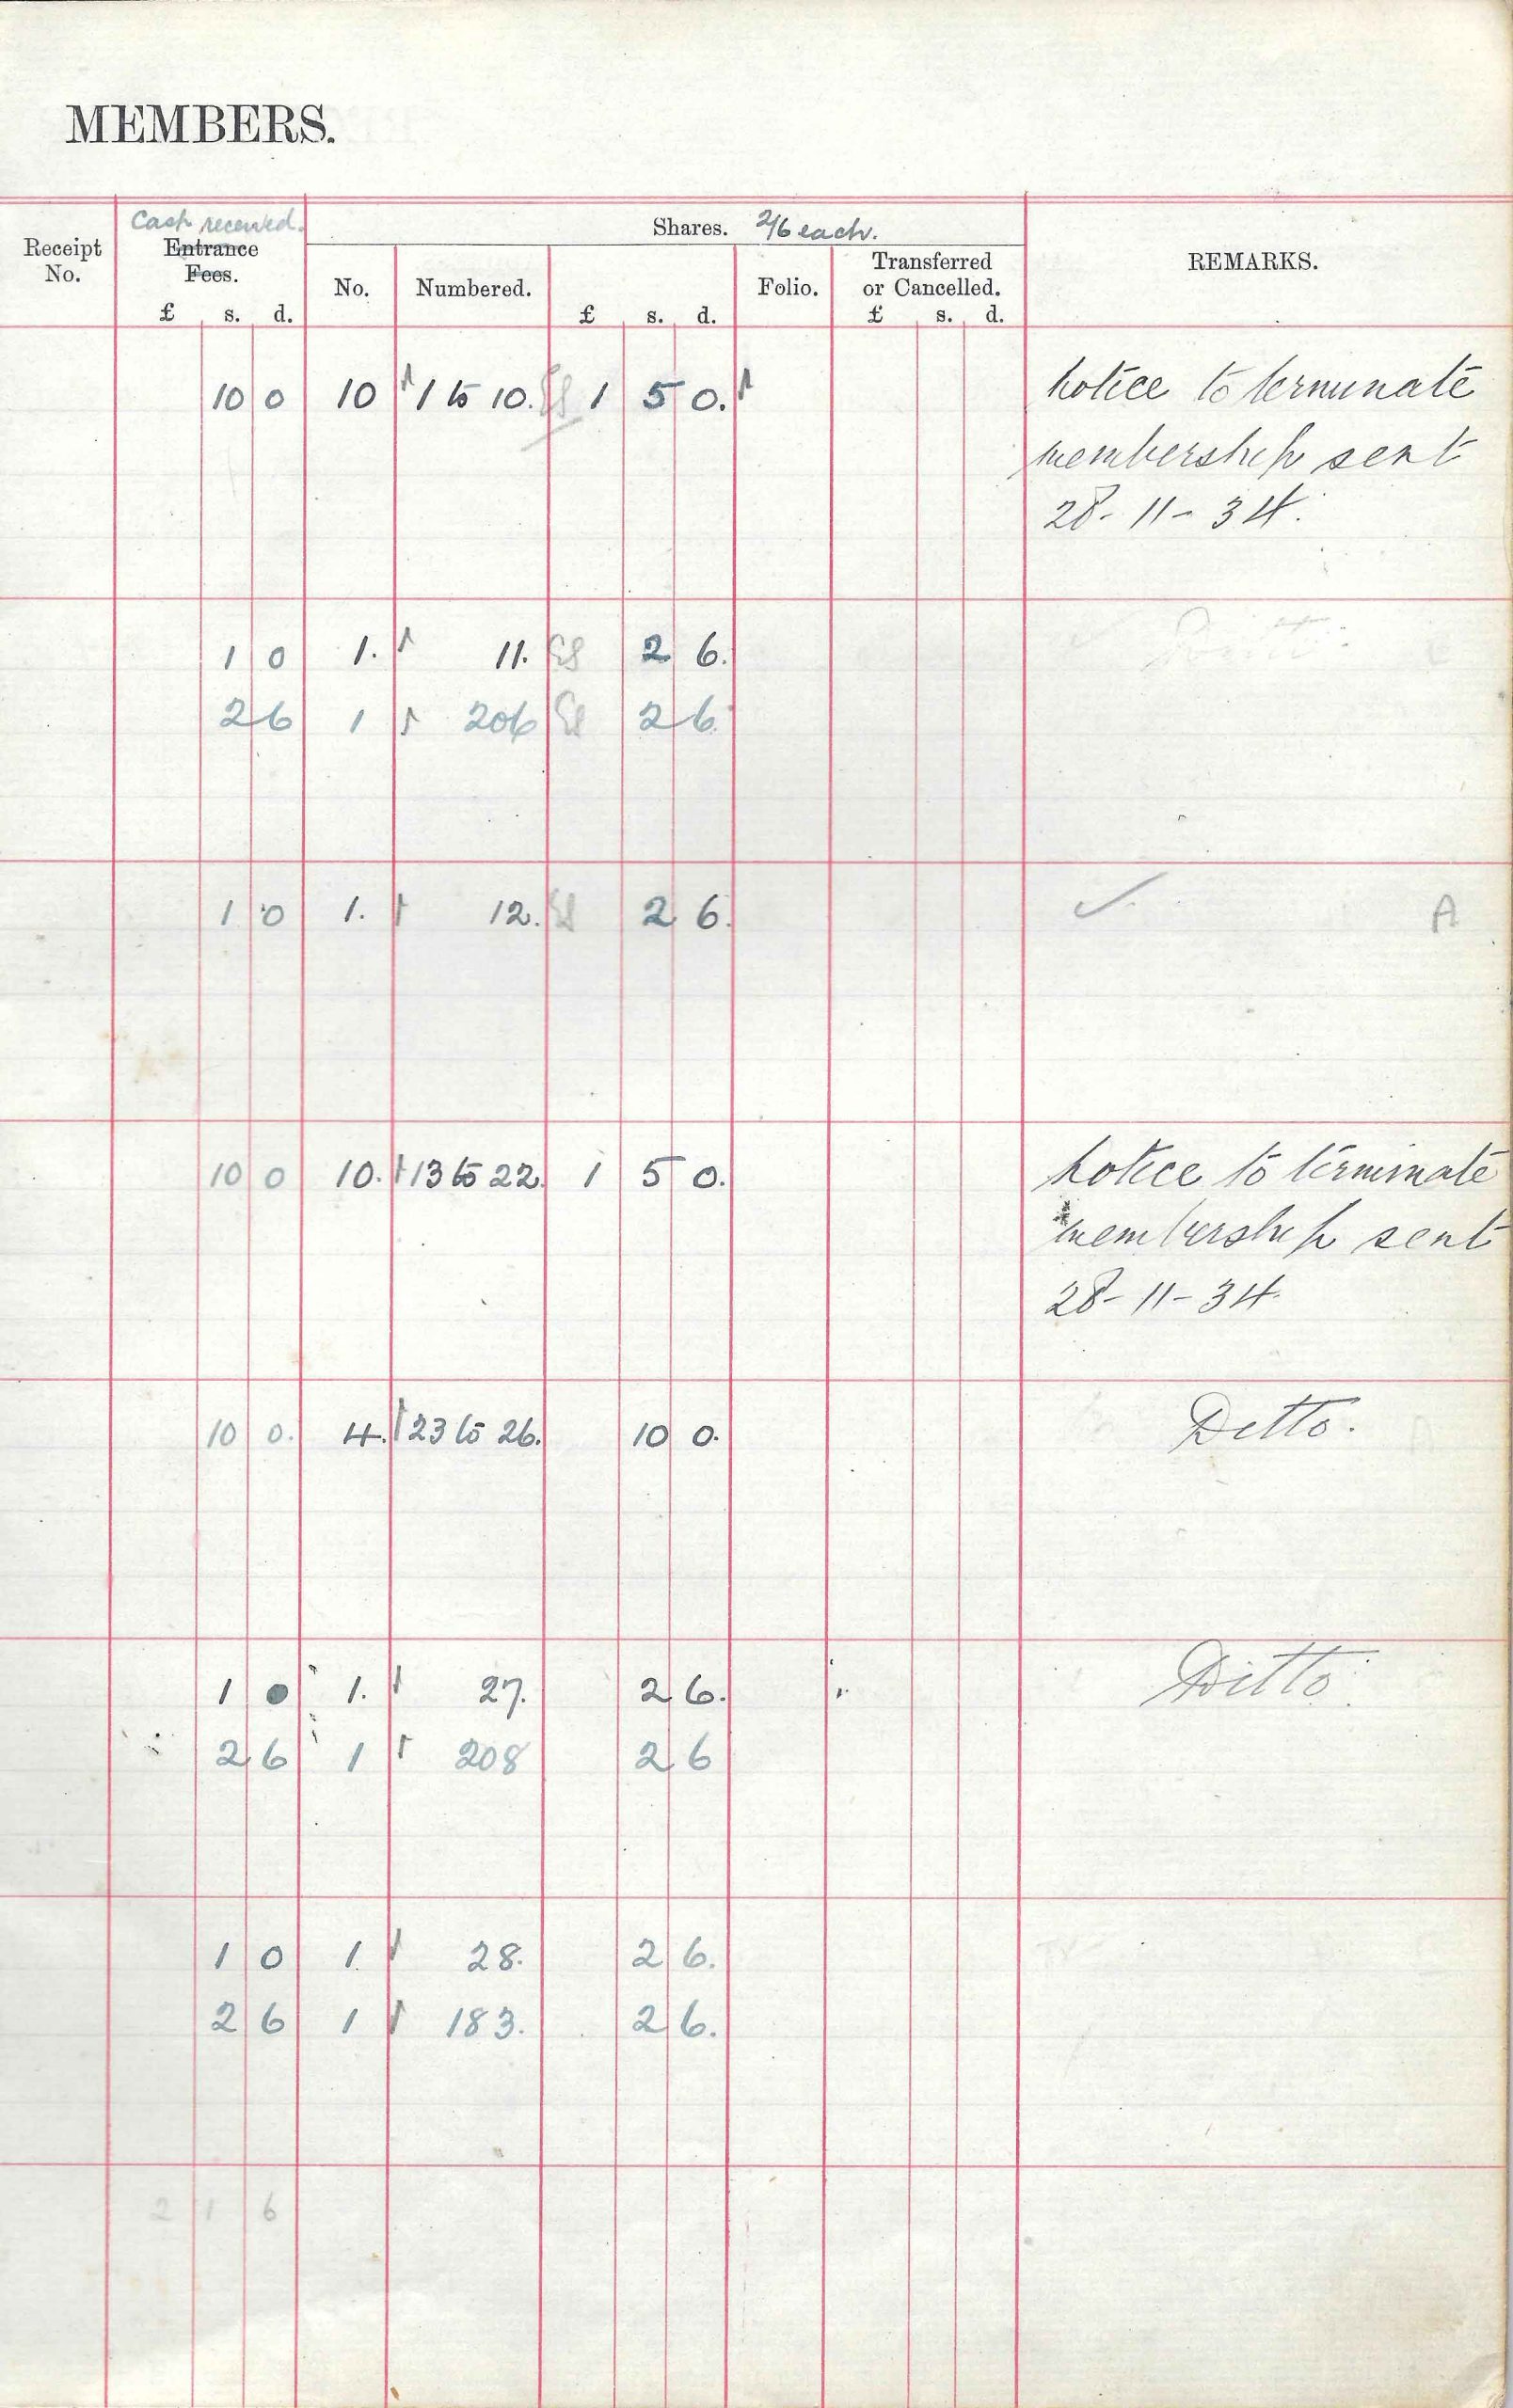 MEMBERS.
Receipt No.
Cash received.
Entrance Fees.
£ s. d.
Shares. 2/6 each.
No. Numbered. £ s. d. Folio. Transferred or Cancelled. £ s. d.
REMARKS.
10 0 10 1 to 10. 1 5 0. Notice to terminate
membership sent
28-11-34.
1 0 1. 11. 2 6.
2 6 1 206 2 6.
1 0 1. 12. 2 6. A
10 0 10. 13 to 22. 1 5 0. Notice to terminate
membership sent
28-11-34.
10 0. 4. 23 to 26. 10 0. Ditto.
1 0 1. 27. 2 6. Ditto.
2 6 1 208 2 6
1 0 1. 28. 2 6.
2 6 1 183. 2 6.
2 1 6